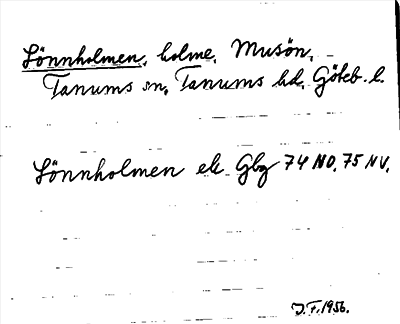 Lönnholmen, holme, Musön,
Tanums sn, Tanums hd. Göteb. l.
Lönnholmen ek Gbg 74 NO, 75 NV.
J.F. 1956.